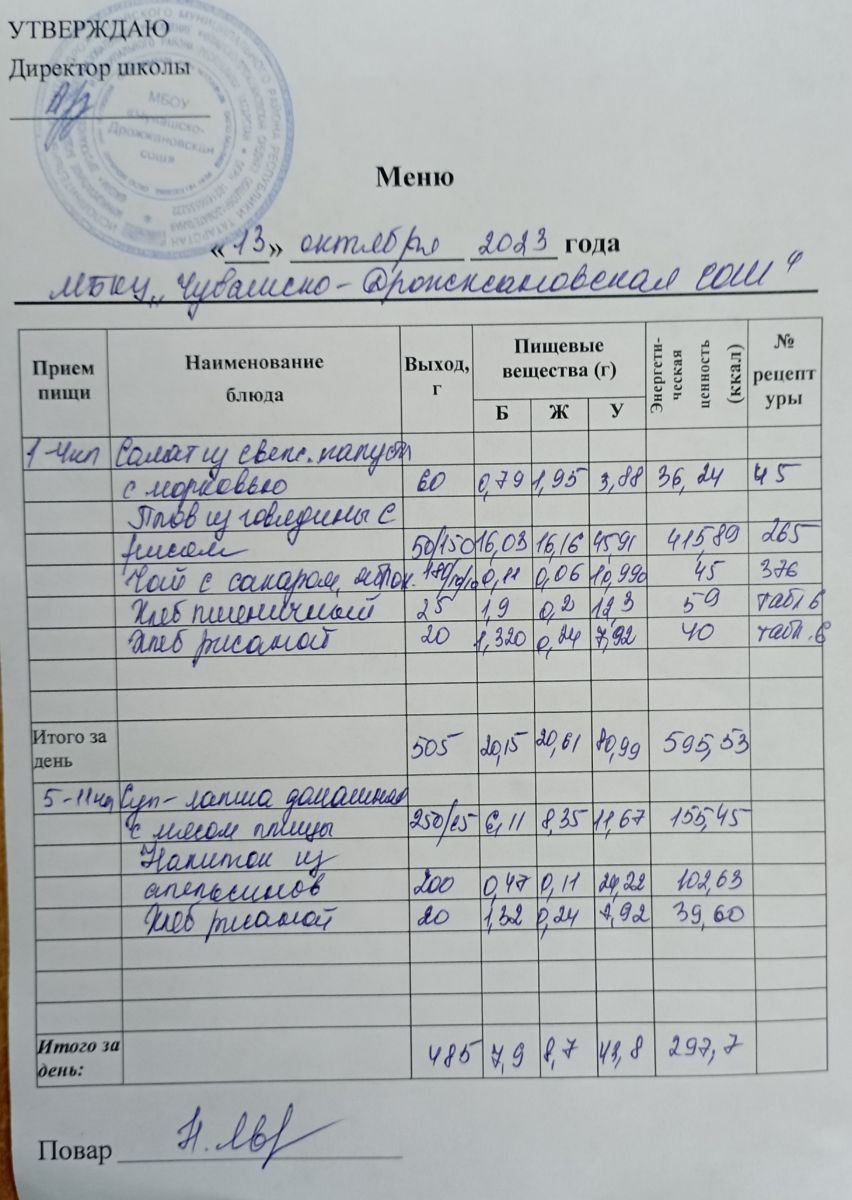 УТВЕРЖДАЮ
Директор школы
МБОУ
«Чувашско-
Дрожжановская
сош»
Меню
«13» октября 2023 года
МБОУ „Чувашско-Дрожжановская СОШ"
Прием пищи Наименование блюда Выход, г Пищевые вещества (г) Энергети-ческая ценность (ккал) № рецептуры
Б Ж У
1-4кл Салат из свеж. капусты
с морковью 60 0,79 1,95 3,88 36,24 45
Плов из говядины с
рисом 50/150 16,03 16,16 45,91 415,89 265
Чай с сахаром, 0,11 0,06 10,990 45 376
Хлеб пшеничный 25 1,9 0,2 12,3 59 табл 6
Хлеб ржаной 20 1,320 0,24 7,92 40 табл. 6
Итого за день 505 20,15 20,61 80,99 595,53
5-11кл Суп-лапша домашняя
с мясом птицы 250/15 6,11 8,35 11,67 155,45
Напиток из
апельсинов 200 0,47 0,11 24,22 102,63
Хлеб ржаной 20 1,32 0,24 7,92 39,60
Итого за день: 485 7,9 8,7 43,8 297,7
Повар